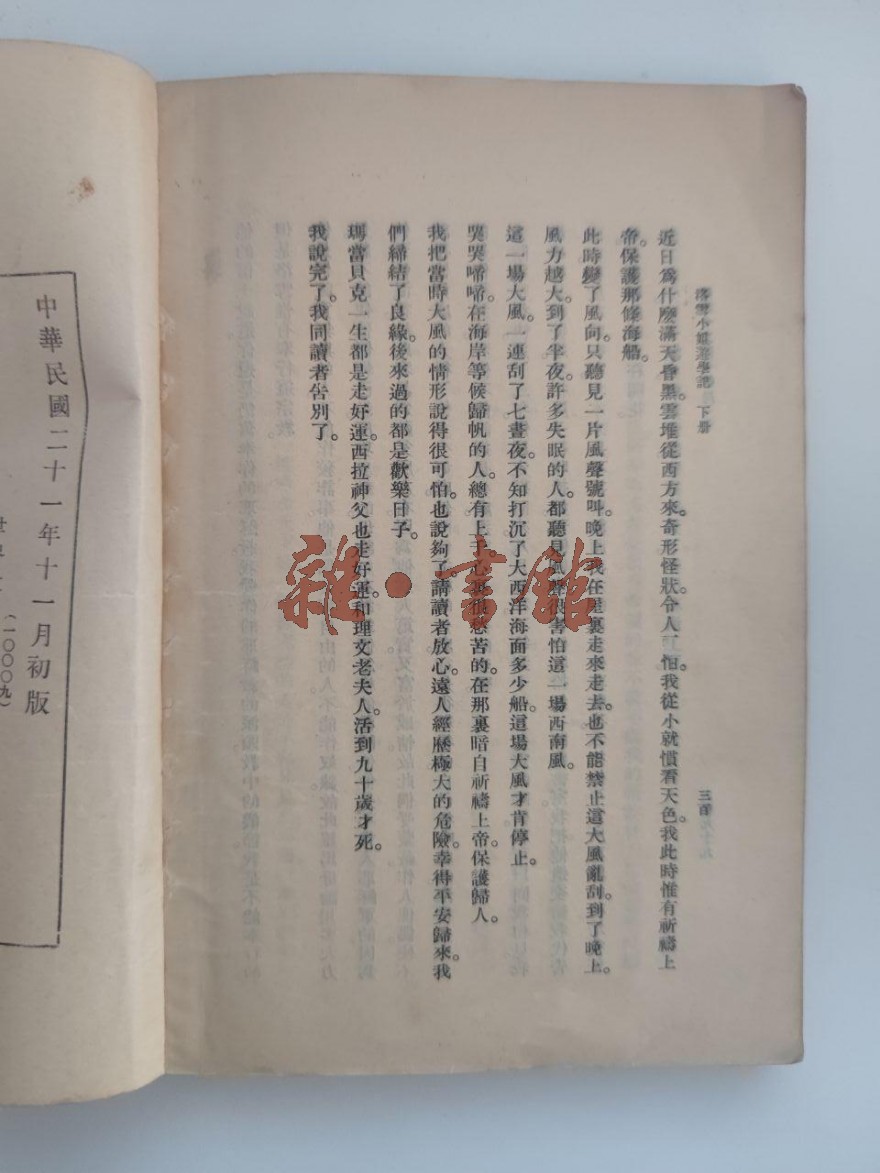 洛雪小姐遊學記 下冊
近日爲什麼滿天昏黑。雲堆從西方來。奇形怪狀。令人可怕。我從小就慣看天色。我此時惟有祈禱上
帝。保護那條海船。
此時變了風向。只聽見一片風聲號叫。晚上我在屋裏走來走去。也不能禁止這大風亂刮。到了晚上。
風力越大。到了半夜。許多失眠的人。都聽見風聲很害怕這一場西南風。
這一場大風。一連刮了七晝夜。不知打沉了大西洋海面多少船。這場大風才肯停止。
哭哭啼啼。在海岸等候歸帆的人。總有上千心裏很愁苦的。在那裏暗自祈禱上帝。保護歸人。
我把當時大風的情形說得很可怕。也說夠了。請讀者放心。遠人經歷極大的危險。幸得平安歸來。我
們締結了良緣。後來過的都是歡樂日子。
瑪當貝克一生都是走好運。西拉神父也走好運。和理文老夫人活到九十歲才死。
我說完了。我同讀者告別了。
中華民國二十一年十一月初版
(一〇〇〇九)
雜·書館